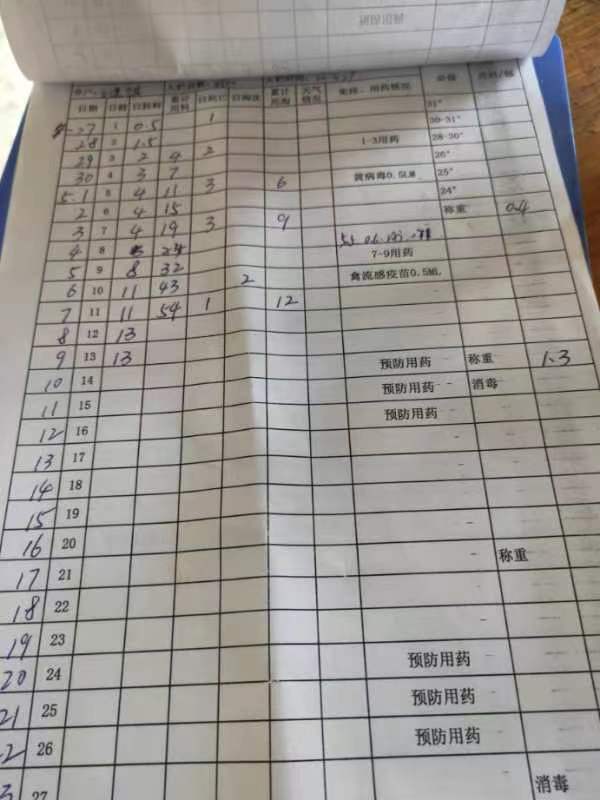 日期 日龄 日耗料 累计用料 日死亡 日淘汰 累计死淘 天气情况 免疫、用药情况
27 1 0.5 1 31°
28 2 1.5 1-3用药 30-31°
29 3 2 4 2 28-30°
30 4 3 7 26°
5.1 5 4 11 3 6 黄病毒0.5LM 25°
2 6 4 15 24°
3 7 4 19 3 9 称重 0.4
4 8 5 24 7-9用药
5 9 8 32
6 10 11 43 2 禽流感疫苗0.5ML
7 11 11 54 1 12
8 12 13
9 13 13 预防用药 称重 1.3
10 14 预防用药 消毒
11 15 预防用药
12 16
13 17
14 18
15 19
16 20
17 21 称重
18 22
19 23
20 24 预防用药
21 25 预防用药
26 预防用药
27 消毒